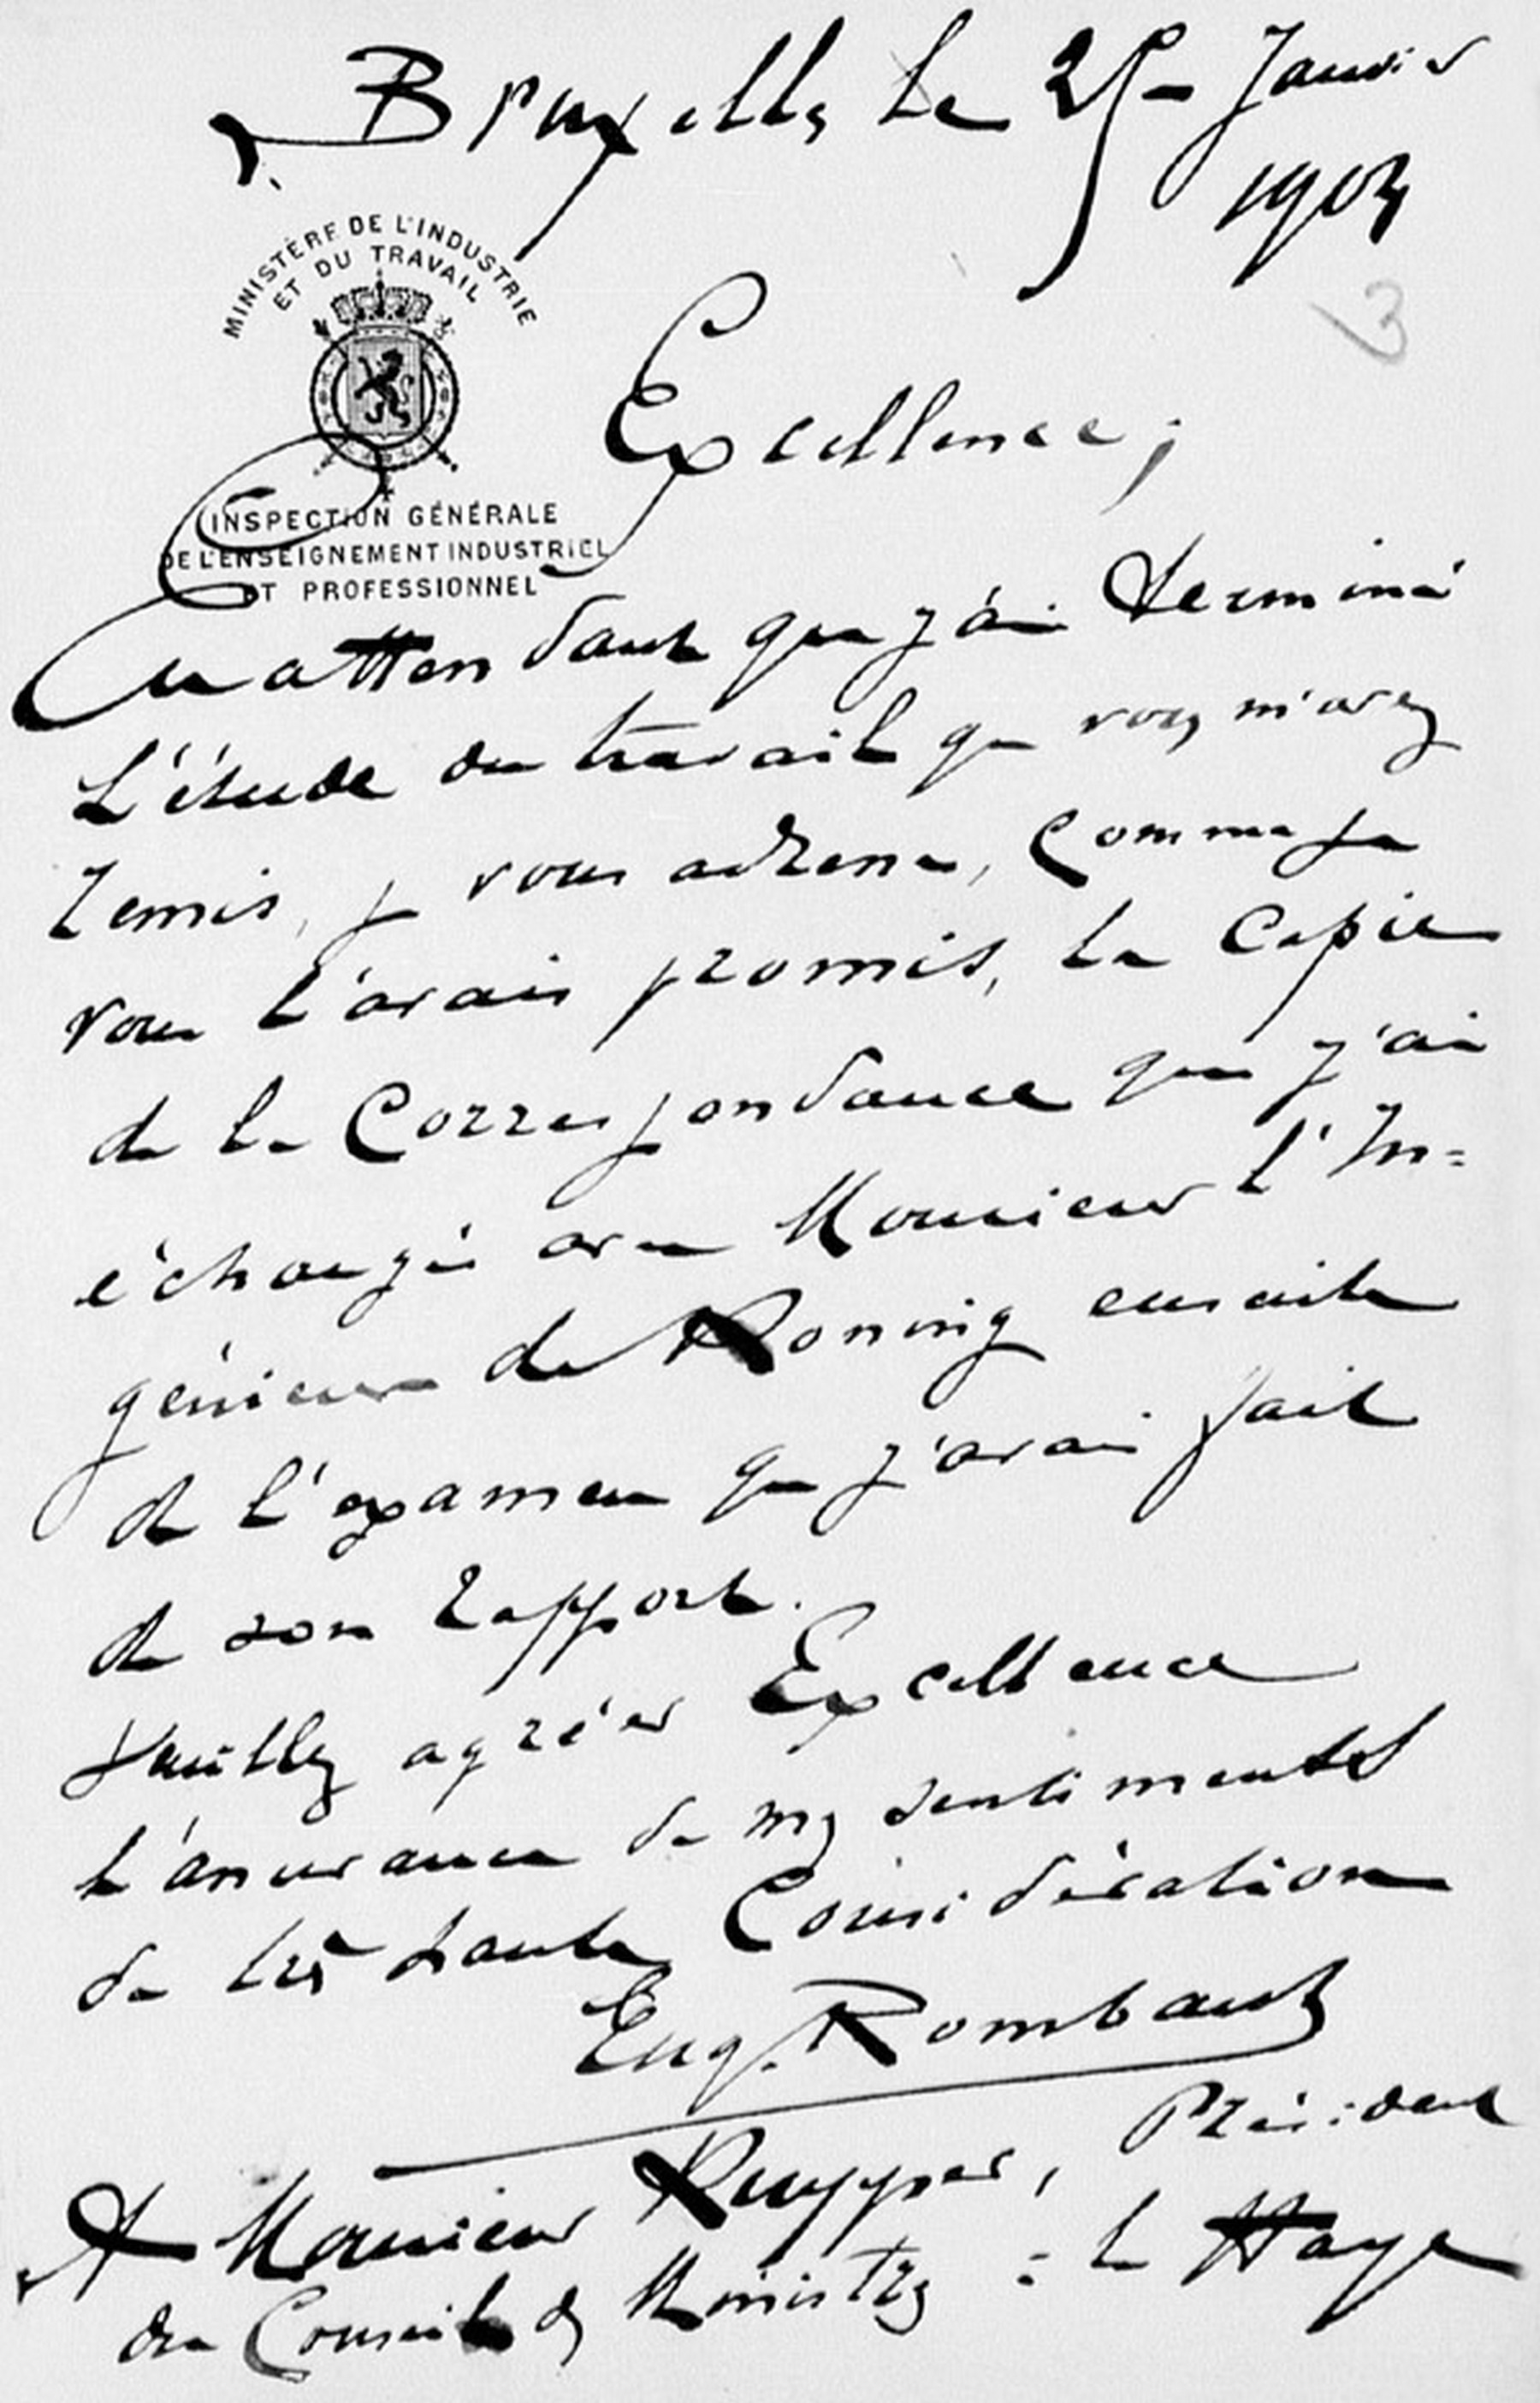 Bruxelles le 25 Janvier
1903
MINISTÈRE DE L'INDUSTRIE
ET DU TRAVAIL
3
Excellence,
INSPECTION GÉNÉRALE
DE L'ENSEIGNEMENT INDUSTRIEL
ET PROFESSIONNEL
En attendant que j'ai terminé
l'étude du travail que vous m'avez
remis, je vous adresse, comme je
vous l'avais promis, la Copie
de la Correspondance que j'ai
échangée avec Monsieur l'In=
génieur de Koning ensuite
de l'examen que j'avais fait
de son rapport.
Veuillez agréer Excellence
l'assurance de mes sentiments
de très haute Considération
Eug. Rombaut
A Monsieur Kuyper, Président
du Conseil des Ministres = la Haye